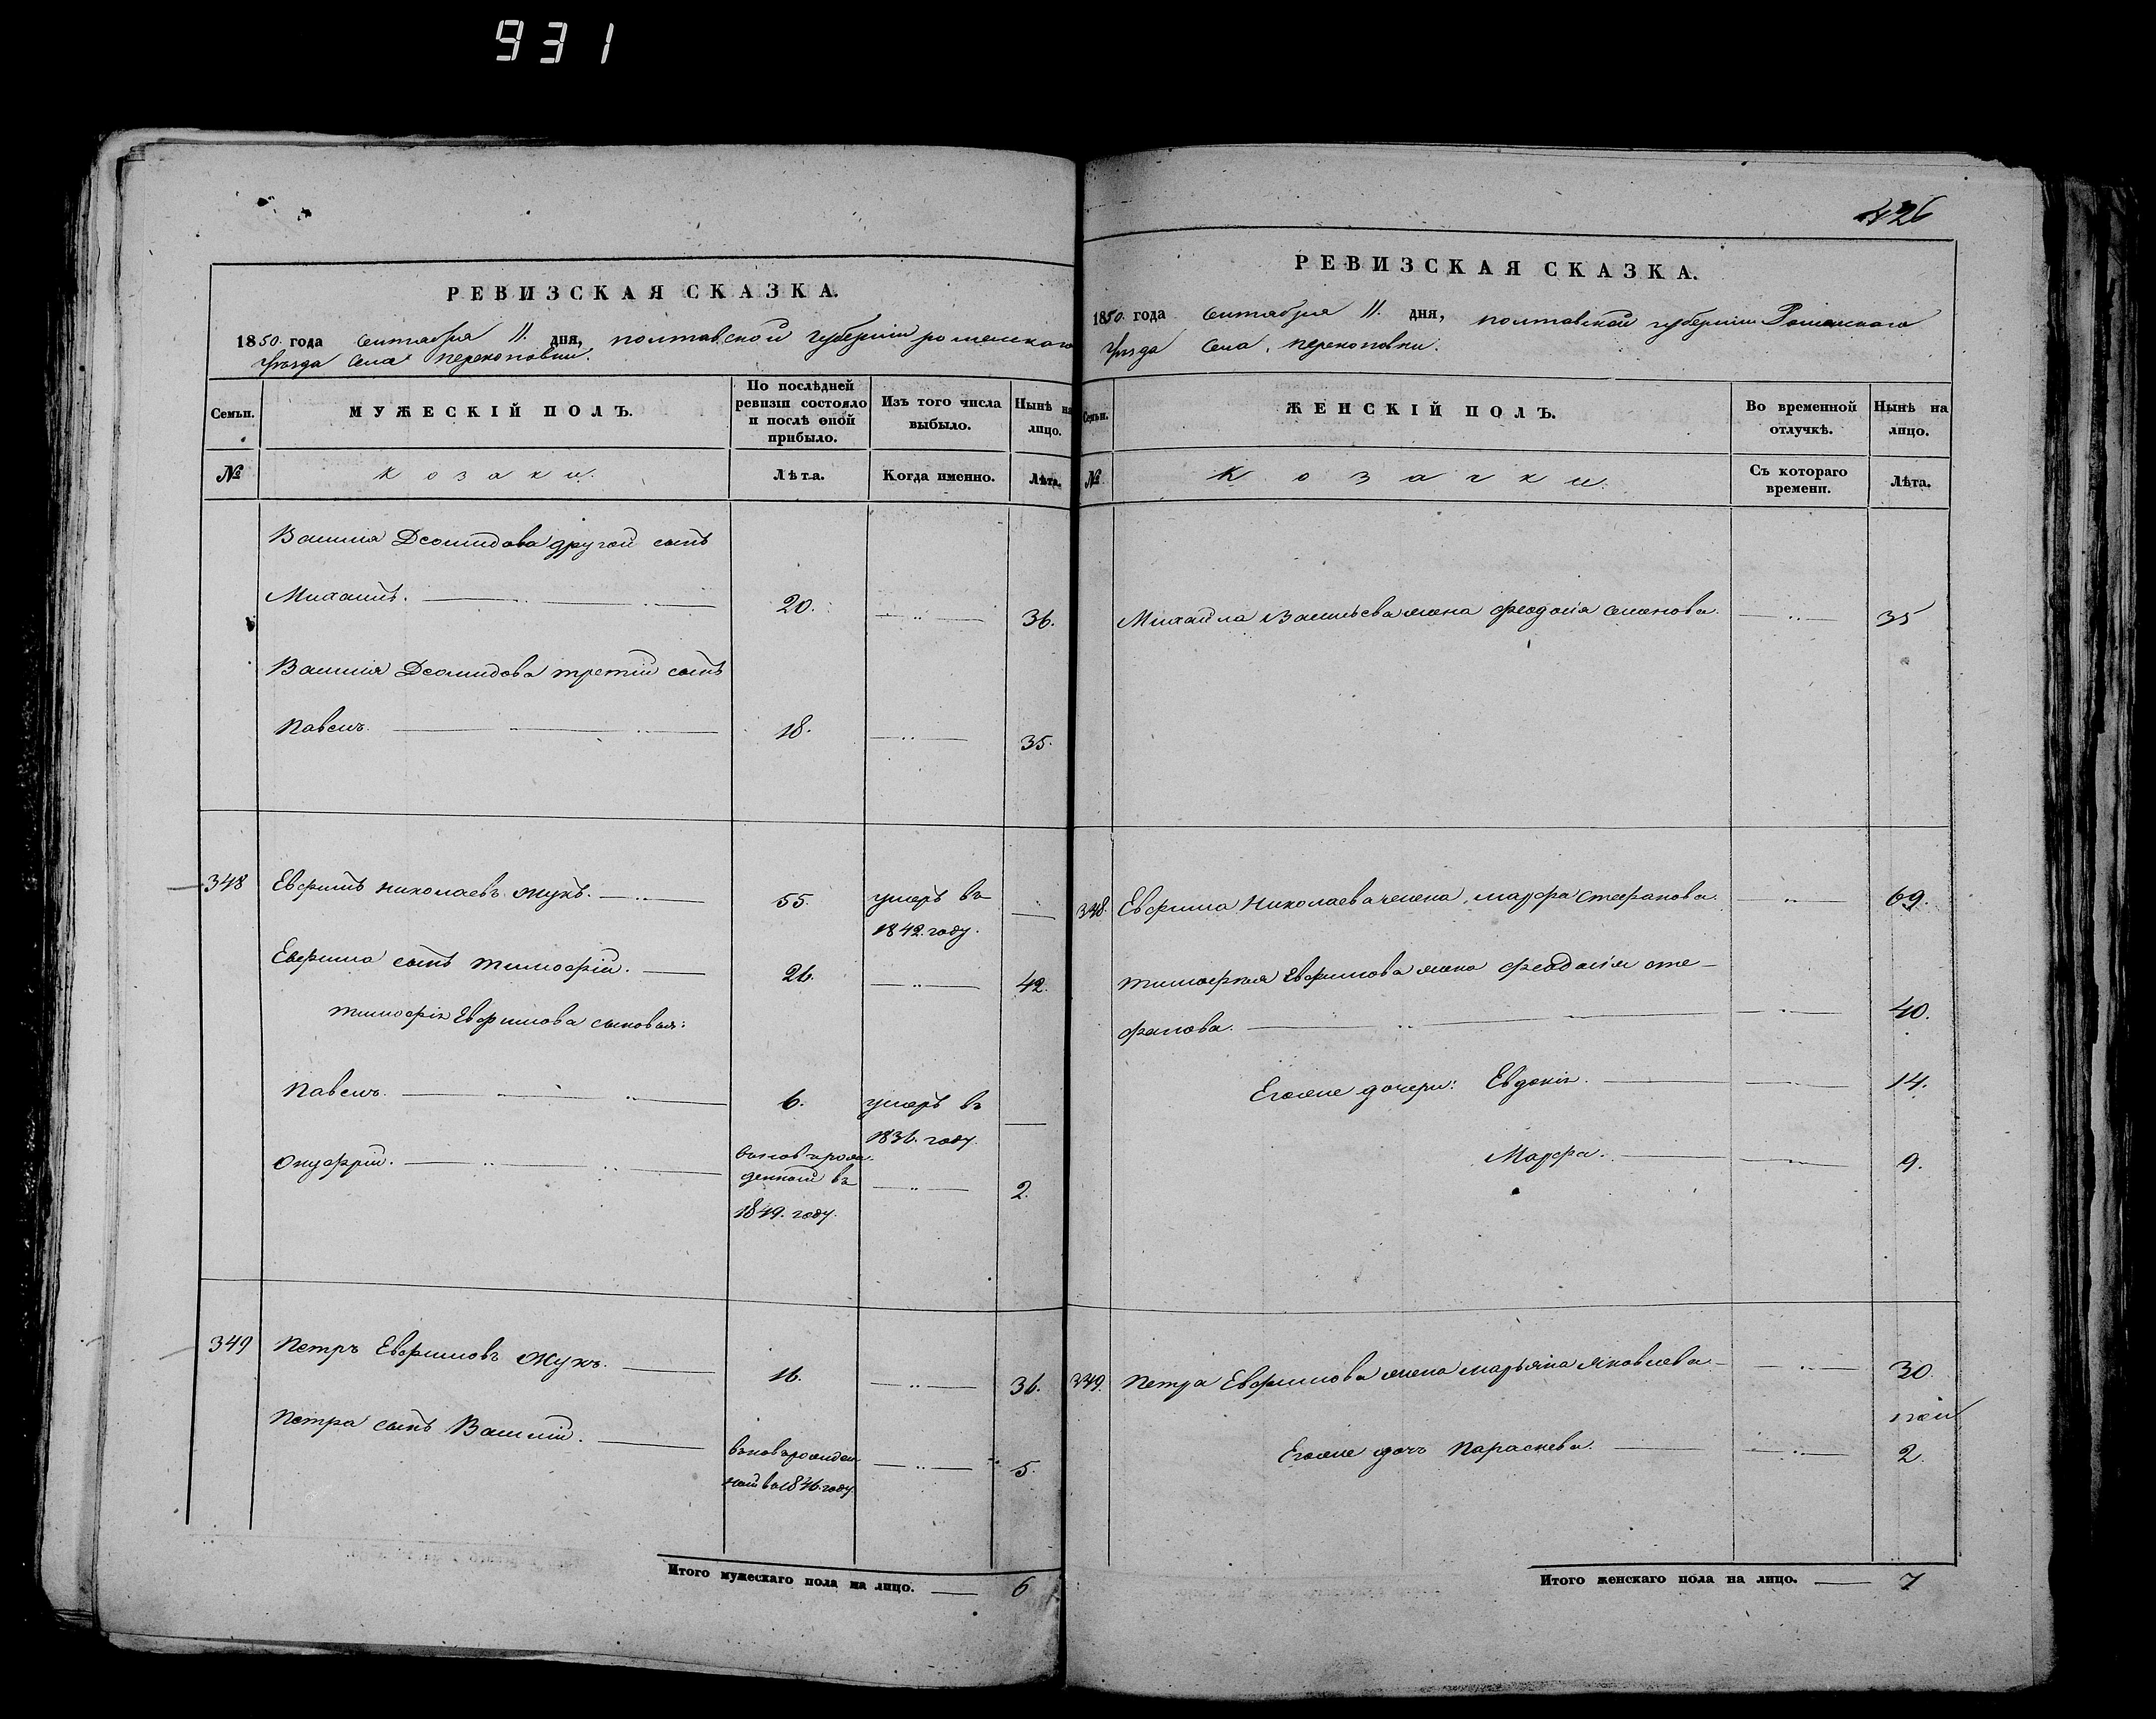 931
РЕВИЗСКАЯ СКАЗКА.
1850. года сентября 11. дня, полтавской губернии роменскаго
уѣзда села перекоповки.
Семьи.
МУЖЕСКІЙ ПОЛЪ.
По послѣдней ревизіи состояло и послѣ оной прибыло.
Изъ того числа выбыло.
Нынѣ на лицо.
№
козаки.
Лѣта.
Когда именно.
Лѣта.
Василія Деомидова другой сынъ
Михаилъ. 20. 36.
Василія Деомидова третій сынъ
Павелъ. 18. 35.
348 Евфимъ Николаевъ Жукъ. 55. умеръ въ
1842. году.
Евфима сынъ тимофій. 26. 42.
тимофія Евфимова сыновья:
Павелъ. 6. умеръ въ
1836. году.
Онуфрій. вновь рож
денной въ 2.
1849. году.
349 Петръ Евфимовъ Жукъ. 16. 36.
Петра сынъ Василій. вновьрожден
ной въ 1846. году 5.
Итого мужескаго пола на лицо. 6
426
РЕВИЗСКАЯ СКАЗКА.
1850. года сентября 11. дня, полтавской губерніи Роменскаго
уѣзда села перекоповки.
Семьи.
ЖЕНСКІЙ ПОЛЪ.
Во временной отлучкѣ.
Нынѣ на лицо.
№
Козачки.
Съ котораго времени.
Лѣта.
Михаила Васильева жена феодосія семенова. 35
348. Евфима Николаева жена, марфа стефанова. 69.
тимофея Евфимова жена феодосія сте-
фанова. 40.
Егоже дочери: Евдокія. 14.
Марфа. 9.
349. Петра Евфимова жена марьяна яковлева 30.
Егоже дочь Параскева. 2.
Итого женскаго пола на лицо. 7